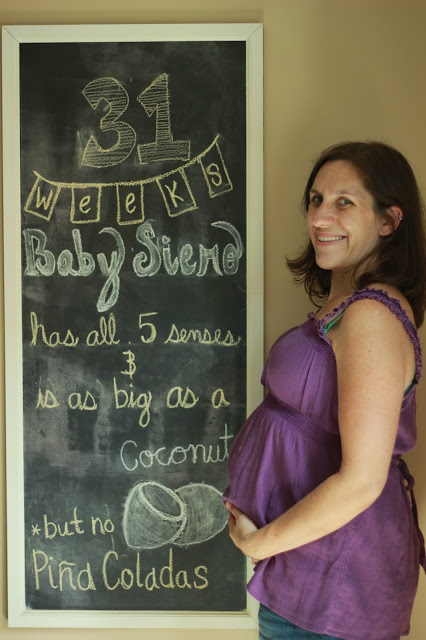 31
WEEKS
Baby Siero
has all 5 senses
&
is as big as a
coconut
*but no
Piña Coladas